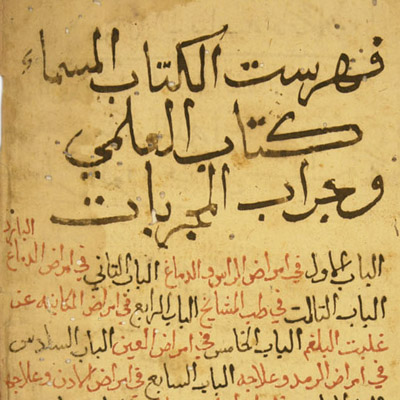 فهرست الكتاب المسماء
كتاب العلمي
وجراب المجربات
الباب الاول في امراض الراس والدماغ الباب الثاني في امراض الدماغ البارد
الباب الثالث في طب المشائخ الباب الرابع في امراض الكاينه عن
غلبت البلغم الباب الخامس في امراض العين الباب السادس
في امراض الرمد وعلاجه الباب السابع في امراض الاذن وعلاجه